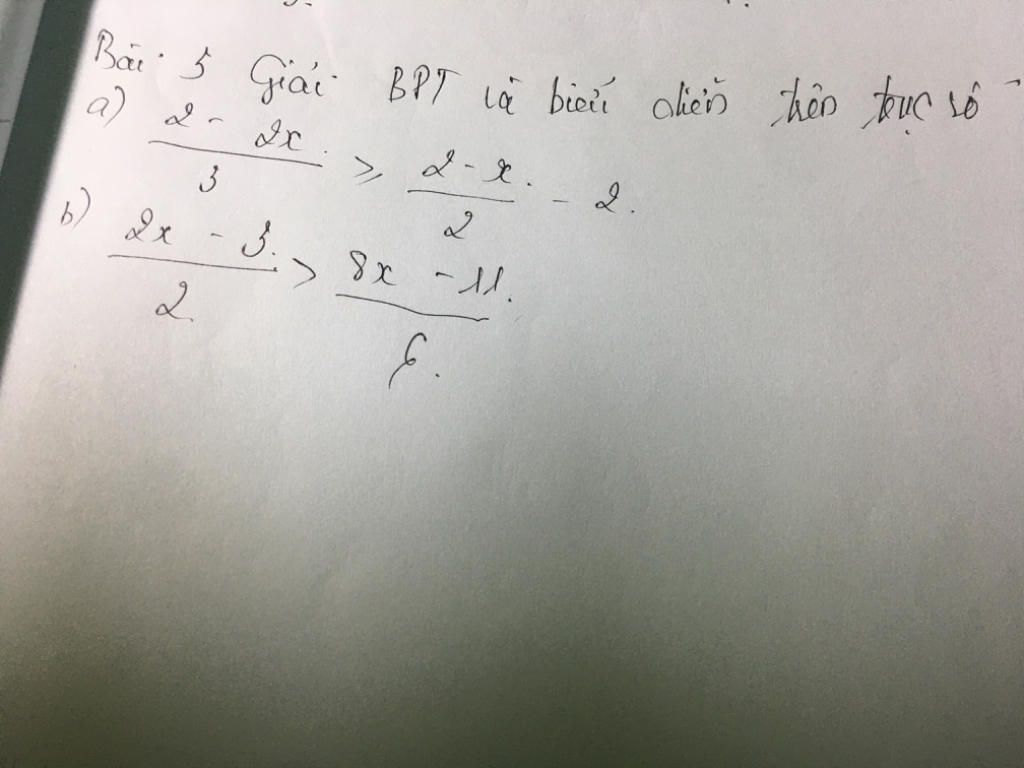 Bài 5 Giải BPT và biểu diễn trên trục số
a) \frac{2 - 2x}{3} ≥ \frac{2 - x}{2} - 2.
b) \frac{2x - 3}{2} > \frac{8x - 11}{6}.